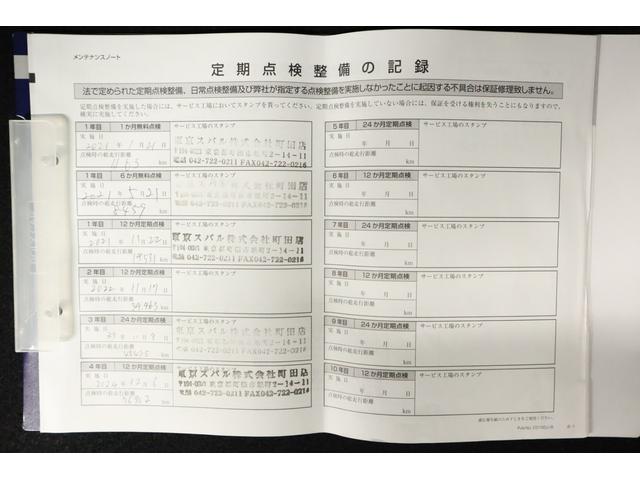 メンテナンスノート
定期点検整備の記録
法で定められた定期点検整備、日常点検整備及び弊社が指定する点検整備を実施しなかったことに起因する不具合は保証修理致しません。
定期点検整備を実施した場合には、サービス工場においてスタンプを貰ってください。定期点検整備を実施していない場合には、保証を受ける権利を失うことにもなりますので、
確実に実施してください。
1年目 1か月無料点検 サービス工場のスタンプ
実施日
2021年1月21日
点検時の総走行距離
km
東京スバル株式会社町田店
電話 042-722-0211 FAX042-722-0216
1年目 6か月無料点検 サービス工場のスタンプ
実施日
2021年5月21日
点検時の総走行距離
km
1年目 12か月定期点検 サービス工場のスタンプ
実施日
2021年11月22日
点検時の総走行距離
km
東京スバル株式会社町田店
電話 042-722-0211 FAX042-722-0216
2年目 12か月定期点検 サービス工場のスタンプ
実施日
2022年11月17日
点検時の総走行距離
km
3年目 24か月定期点検 サービス工場のスタンプ
実施日
点検時の総走行距離
km
東京スバル株式会社町田店
4年目 12か月定期点検 サービス工場のスタンプ
実施日
2024年12月
点検時の総走行距離
km
東京スバル株式会社町田店
電話 042-722-0211 FAX042-722-0216
5年目 24か月定期点検 サービス工場のスタンプ
実施日
年 月 日
点検時の総走行距離
km
6年目 12か月定期点検 サービス工場のスタンプ
実施日
年 月 日
点検時の総走行距離
km
7年目 24か月定期点検 サービス工場のスタンプ
実施日
年 月 日
点検時の総走行距離
km
8年目 12か月定期点検 サービス工場のスタンプ
実施日
年 月 日
点検時の総走行距離
km
9年目 24か月定期点検 サービス工場のスタンプ
実施日
年 月 日
点検時の総走行距離
km
10年目 12か月定期点検 サービス工場のスタンプ
実施日
年 月 日
点検時の総走行距離
km